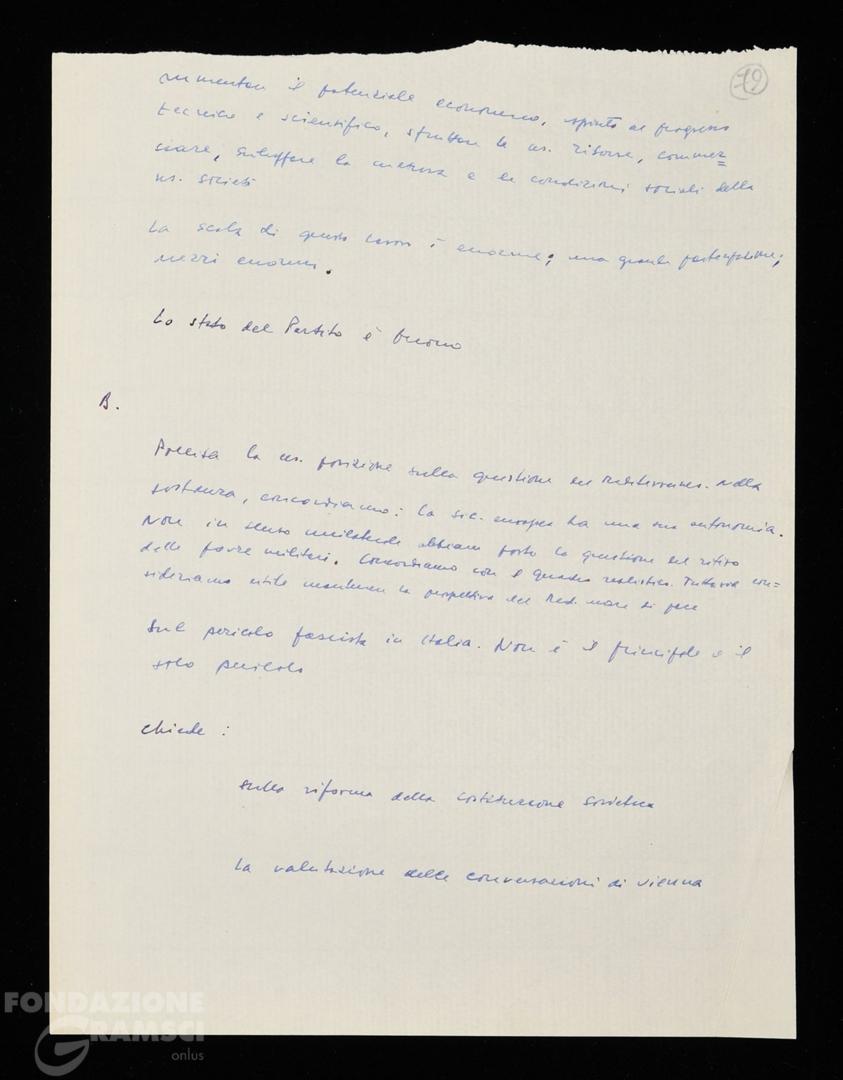 79
aumentare il potenziale economico, spinta al progresso
tecnico e scientifico, sfruttare le ns. risorse, commer=
ciare, sviluppare la e le condizioni sociali della
ns. società
La scala di questo lavoro è enorme; una grande partecipazione;
mezzi enormi.
Lo stato del Partito è buono
B.
Precisa la ns. posizione sulla questione del Mediterraneo. Nella
sostanza, concordiamo: la sic. europea ha una sua autonomia.
Non in senso unilaterale abbiamo posto la questione del ritiro
delle forze militari. Concordiamo con il quadro realistico. Tuttavia con=
sideriamo utile mantenere la prospettiva del Med. mare di pace
Sul pericolo fascista in Italia. Non è il principale e il
solo pericolo
chiede:
sulla riforma della costituzione sovietica
la valutazione delle conversazioni di Vienna
FONDAZIONE
GRAMSCI
onlus